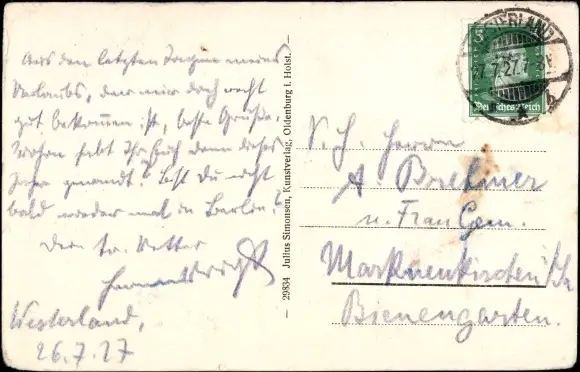 Aus den letzten Tagen meines
Urlaubs, der mir doch recht
gut bekommen ist, beste Grüße.
Wohin habt Ihr Euch denn dieses
Jahr gewandt? Bist Du nicht
bald wieder mal in Berlin?
Dein tr. Vetter
Westerland,
26.7.27
— 29834 Julius Simonsen, Kunstverlag, Oldenburg i. Holst. —
5
Deutsches Reich
WESTERLAND
7.27.
S. H. Herrn
A. Brehmer
u. Frau Gem.
Markneukirchen i/Sa
Bienengarten.